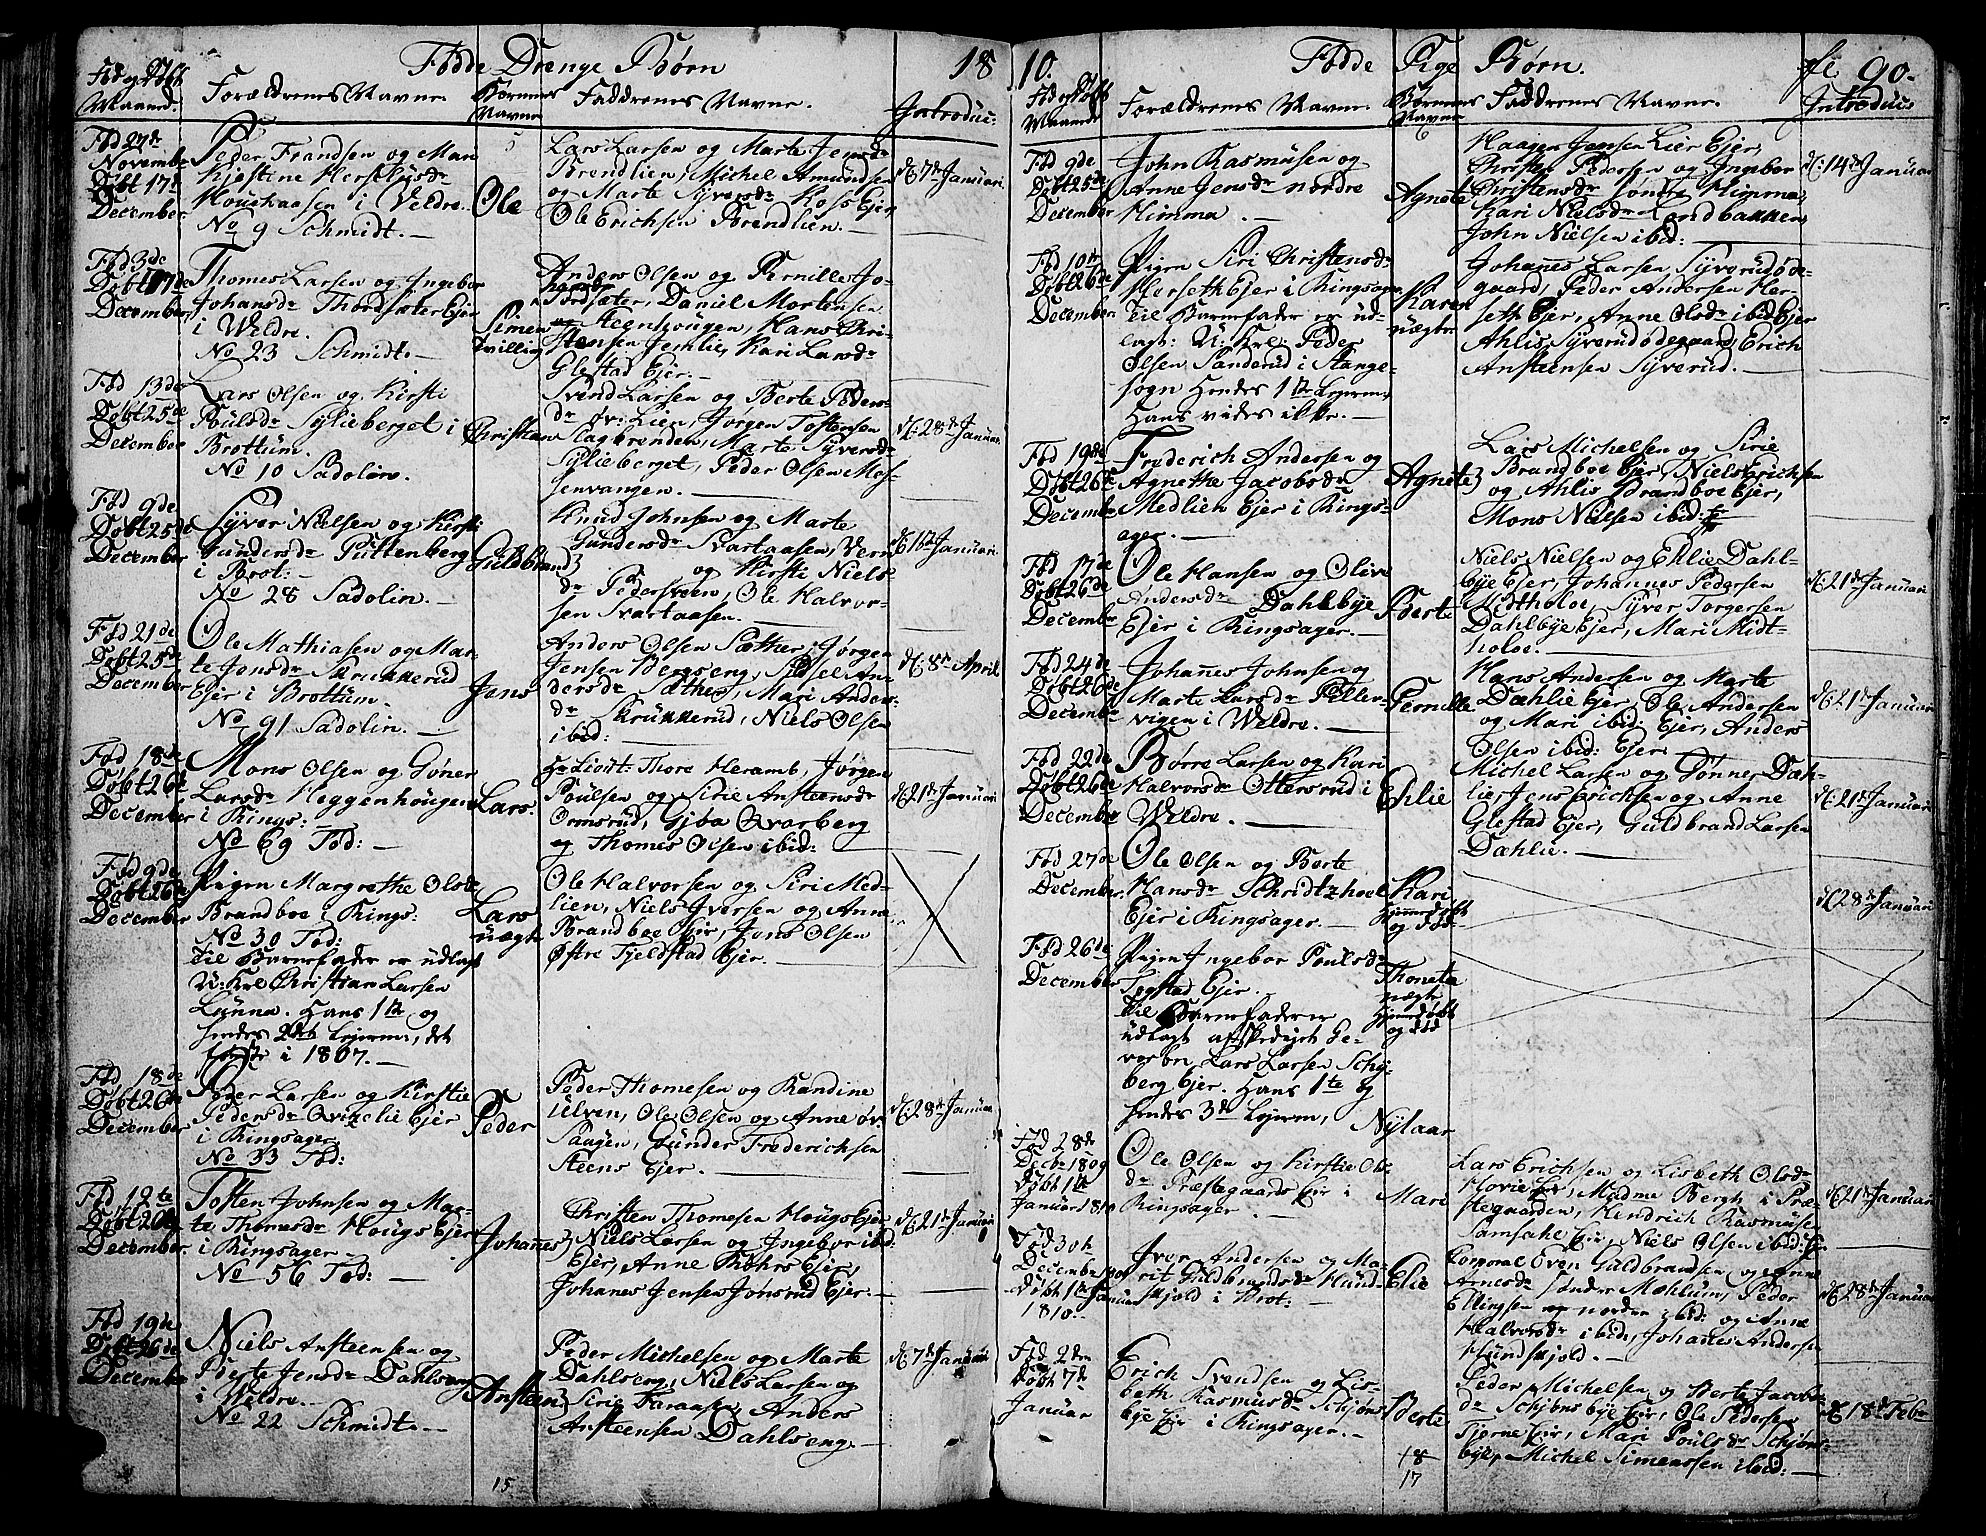 Fødde Drenge Børn 18
Fød og Døbt Maaned. Forældrenes Navne. Børnenes Navne Faddrenes Navne. Introduc:
Fød 27de
November
Døbt 17de
December
Peder Frandsen og Mari
Kjestine
i Veldre.
No 9 Schmidt.
Ole
Lars Larsen og Marte Jensdr
Brendlien, Michel Amundsen
og Marte Syversdr Koss Ejer
Ole Erichsen Brendlien.
d. 7de Januari
Fød 3de
Døbt 17de
December
Thomes Larsen og Ingebor
Johansdr Thordsæter Ejer
i Veldre.
No 23 Schmidt.
Simen
tvilling
Anders Olsen og Pernille Jo-
hansdr
Tordsæter, Daniel Mortensen
Steenhougen, Hans Chri-
stensen Jemlie, Kari Larsdr
Glestad Ejer.
Fød 13de
Døbt 25de
December
Lars Olsen og Kirsti
Poulsdr Sylieberget i
Brottum.
No 10 Sadolin.
Christian
Svend Larsen og Berte Peders-
dr øv: Lien, Jørgen Tostensen
Slagbrenden, Marte Syversdr
Sylieberget, Peder Olsen Mos-
senvangen.
d. 28de Januari
Fød 9de
Døbt 25de
December
Syver Nielsen og Kirsti
Gundersdr Puttenberg
i Brot:
No 28 Sadolin.
Guldbrand
Knud Johnsen og Marte
Gundersdr Svartaasen,
og Kirsti Niels
dr Pedersveen, Ole Halvor-
sen Svartaasen.
Januari
Fød 21de
Døbt 25de
December
Ole Mathiasen og Mar-
te Jensdr Skrukkerud
Ejer i Brottum.
No 91 Sadolin.
Jens
Anders Olsen Sæther, Jørgen
Jensen Bergseng, Sidsel An-
dersdr Sæther, Mari Anders
dr Skrukkerud, Niels Olsen
ibid:
d. 8de April
Fød 18de
Døbt 26de
December
Mons Olsen og Gøner
Larsdr Heggenhougen
i Rings:
No 69 Fød:
Lars
Hr Lieut: Thore Heramb, Jørgen
Poulsen og Sirie Ansteensdr
Ormsrud, Gjba Qvarberg
og Thomes Olsen ibid:
d. 21de Januari
Fød 9de
Døbt 26de
December
Pigen Margrethe Olsdr
Brandboe i Rings:
No 30 Fød:
Til Barnefader er udlagt
U: Krl Christian Larsen
Lunna. Hans 1te og
hendes 2det Lejerm, det
første i 1807.
Lars
uægte
Ole Halvorsen og Siri Med-
lien, Niels Iversen og Anne
Brandboe Ejer, Jens Olsen
Østre Fjeldstad Ejer.
Fød 18de
Døbt 26de
December
Peder Larsen og Kirstie
Pedersdr Ejer
i Ringsager.
No 33 Fød:
Peder
Peder Thomesen og Randine
Ulven, Ole Olsen og Anne øv:
Saugen, Gunder Frederichsen
Steens Ejer.
d. 28de Januar
Fød 12te
Døbt 26de
December
Tosten Johnsen og Mar-
te Thomesdr Hougs Ejer
i Ringsager
No 56 Fød:
Johannes
Christen Thomesen Hougs Ejer
Niels Larsen og Ingebor ibid:
Ejer, Anne Rohrs Ejer,
Johanes Jensen Jønsrud Ejer.
d. 21de Januari
Fød 19de
Døbt 26de
December
Niels Ansteensen og
Berte Jensdr Dahlseng
i Veldre.
No 22 Schmidt.
Ansteen
Peder Michelsen og Marte
Dahlseng, Niels Larsen og
Sirie Faraasen, Anders
Ansteensen Dahlseng.
d. 7de Januari
15
10. Fødde Pige Børn. fl 90.
Fød og Døbt Maaned Forældrenes Navne. Børnenes Navne Faddrenes Navne. Introduc:
Fød 9de
Døbt 25de
December
John Rasmusen og
Anne Jensdr nordre
Himma.
Agnete
Haagen Jensen Lier Ejer,
Christen Pedersen og Ingebor
Christensdr søndre Himma,
Kari Nielsdr Sandbakken,
John Nielsen ibid:
d. 14de Januari
Fød 10de
Døbt 26de
December
Pigen Siri Christensdr
Herseth Ejer i Ringsager
Til Barnefader er ud-
lagt: U: Krl: Peder
Olsen Sanderud i Stange-
sogn Hendes 1te Lejerm,
Hans vides ikke.
Karen
uægte
Johannes Larsen Syverudøde-
gaard, Peder Andersen Her-
seth Ejer, Anne Olsdr ibid Ejer
Ahlis Syverudødegaard, Erich
Ansteensen Syverud.
Fød 19de
Døbt 26de
December
Frederich Andersen og
Agnethe Jacobsdr
Medlien Ejer i Rings-
ager.
Agnete
Lars Michelsen og Sirie
Brandboe Ejer, Niels Erichsen
og Ahlis Brandboe Ejer,
Mons Nielsen ibid:
Fød 17de
Døbt 26de
December
Ole Hansen og Olive
Andersdr Dahlbye
Ejer i Ringsager.
Berte
Niels Nielsen og Ehlie Dahl-
bye Ejer, Johannes Pedersen
Midtholoe, Syver Torgersen
Dahlbye Ejer, Mari Midt-
holoe.
d. 21de Januari
Fød 24de
Døbt 26de
December
Johannes Johnsen og
Marte Larsdr Piller-
vigen i Veldre.
Pernille
Hans Andersen og Marte
Dæhlie Ejer, Ole Andersen
og Mari ibid: Ejer, Anders
Olsen ibid: Ejer
d. 21de Januari
Fød 22de
Døbt 26de
December
Børre Larsen og Kari
Halvorsdr Ottersrud i
Veldre.
Ehlie
Michel Larsen og Gønner Dæh-
lie, Jens Erichsen og Anne
Glestad Ejer, Guldbrand Larsen
Dæhlie.
d. 21de Januari
Fød 27de
December
Ole Olsen og Berte
Hansdr Schridtzhoel
Ejer i Ringsager.
Kari
hjemmedøbt
og død
d. 28de Januari
Fød 26de
December
Pigen Ingebor Poulsdr
Tegstad Ejer.
Til Barnefader er
udlagt afskediget Ge-
vorbn Lars Larsen Schy-
berg Ejer. Hans 1te og
hendes 3de Lejerm,
Thoneta
uægte
hjemmedøbt
og død
Nylaar
Fød 28de
Decbr 1809
Døbt 1te
Januar 1810
Ole Olsen og Kirstie Ols
dr Præstegaards Ejer i
Ringsager.
Mari
Lars Erichsen og Lisbeth Olsdr
Hovie Ejer, Madme Bergh i Præ-
stegaarden, Hendrich Rasmusen
Samsahl Ejer, Niels Olsen ibid: Ejer
d. 21de Januari
Fød 30te
December 1809
Døbt 1te Januar
1810.
Iver Andersen og Ma-
rit Guldbrandsdr Hund-
skjold i Brot:
Elie
Corporal Even Guldbrandsen og Anne
Arnesdr sønder Mæhlum, Peder
Ellingsen nordre ibid: og Anne
Halvorsdr ibid, Johanes Andersen
Hundskjold.
d. 28de Januari
Fød 2den
Døbt 7de
Januar
Erich Svendsen og Lis-
beth Rasmusdr Schjøns
bye Ejer i Ringsager.
Berte
Peder Michelsen og Berte Jacobs
dr Schjønsbye Ejer, Ole Pedersen
Tjerne Ejer, Mari Poulsdr Schjøns-
bye, Michel Simensen ibid:
d. 18de Febr
18
17